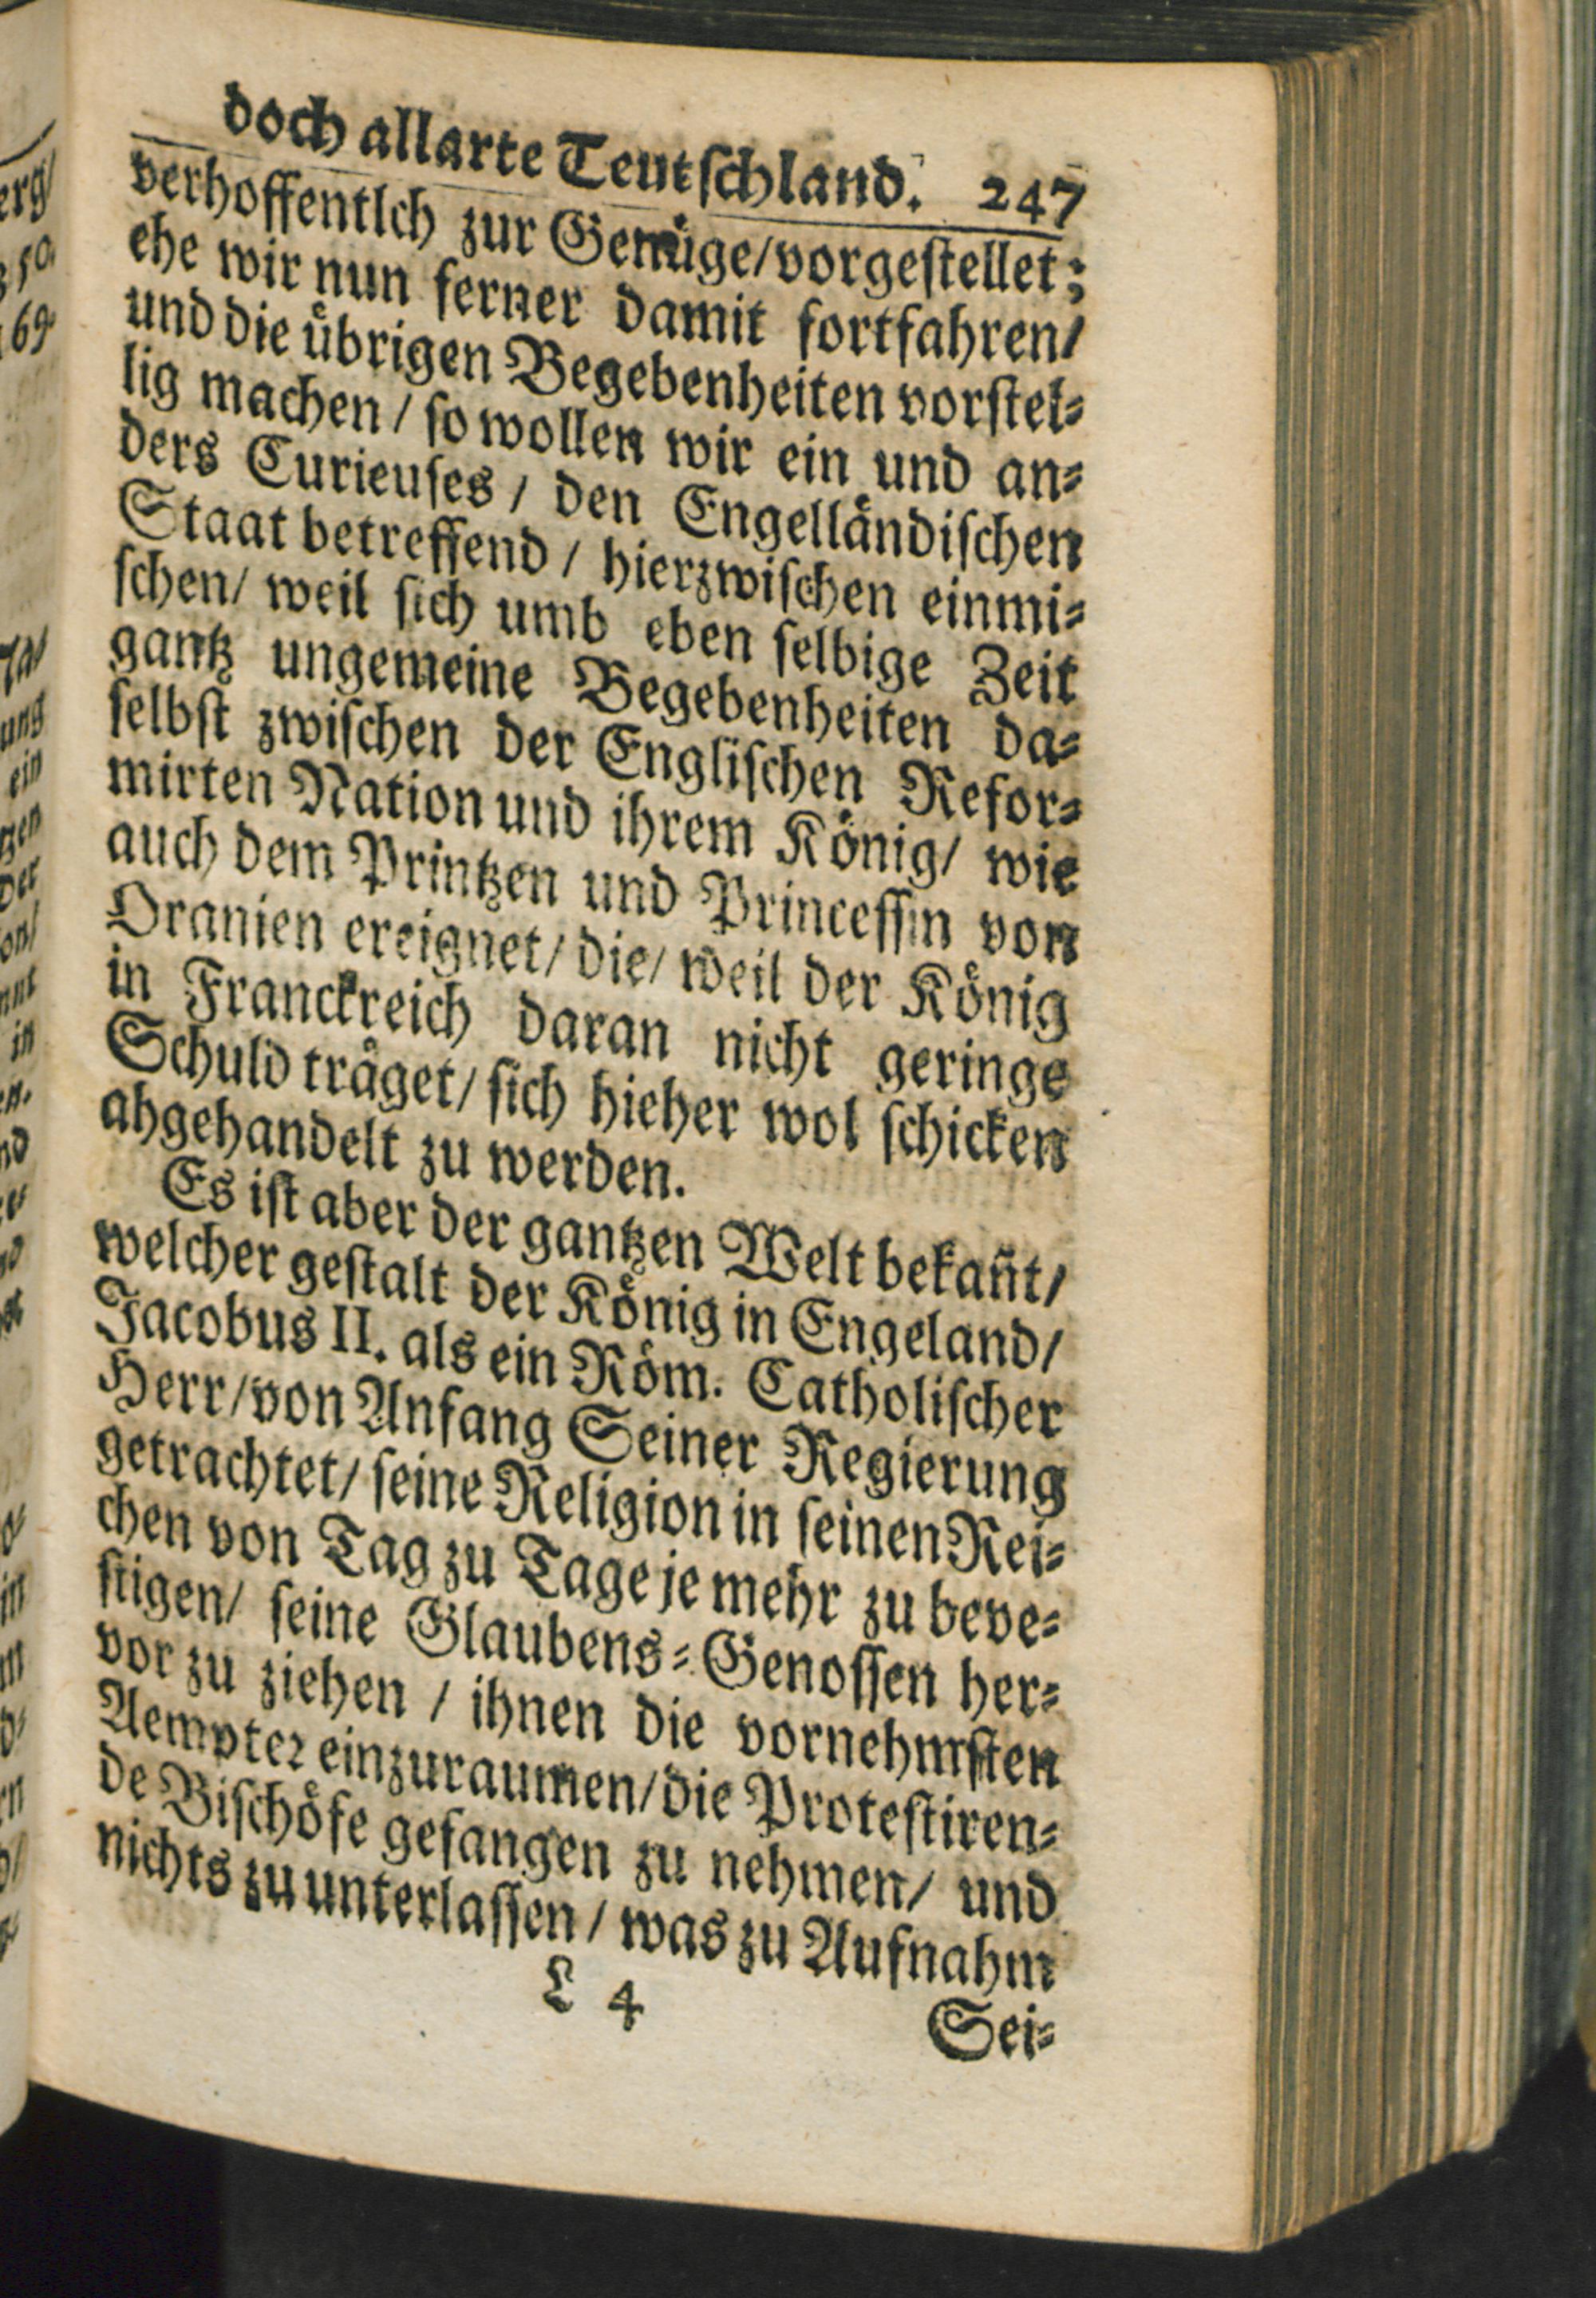 doch allarte Teutſchland. 247
verhoffentlch zur Genuͤge/vorgeſtellet;
ehe wir nun ferner damit fortfahren/
und die uͤbrigen Begebenheiten vorſtel⸗
lig machen / ſo wollen wir ein und an⸗
ders Curieuſes / den Engellaͤndiſchen
Staat betreffend / hierzwiſchen einmi⸗
ſchen/ weil ſich umb eben ſelbige Zeit
gantz ungemeine Begebenheiten da⸗
ſelbſt zwiſchen der Engliſchen Refor⸗
mirten Nation und ihrem Koͤnig/ wie
auch dem Printzen und Princeſſin von
Oranien ereignet/ die/ weil der Koͤnig
in Franckreich daran nicht geringe
Schuld traͤget/ ſich hieher wol ſchicken
abgehandelt zu werden.
Es iſt aber der gantzen Welt bekañt/
welcher geſtalt der Koͤnig in Engeland/
Jacobus II. als ein Roͤm. Catholiſcher
Herr/von Anfang Seiner Regierung
getrachtet/ ſeine Religion in ſeinen Rei⸗
chen von Tag zu Tage je mehr zu beve⸗
ſtigen/ ſeine Glaubens⸗Genoſſen her⸗
vor zu ziehen / ihnen die vornehmſten
Aempter einzuraumen/die Proteſtiren⸗
de Biſchoͤfe gefangen zu nehmen/ und
nichts zu unterlaſſen / was zu Aufnahm
L 4
Sei⸗